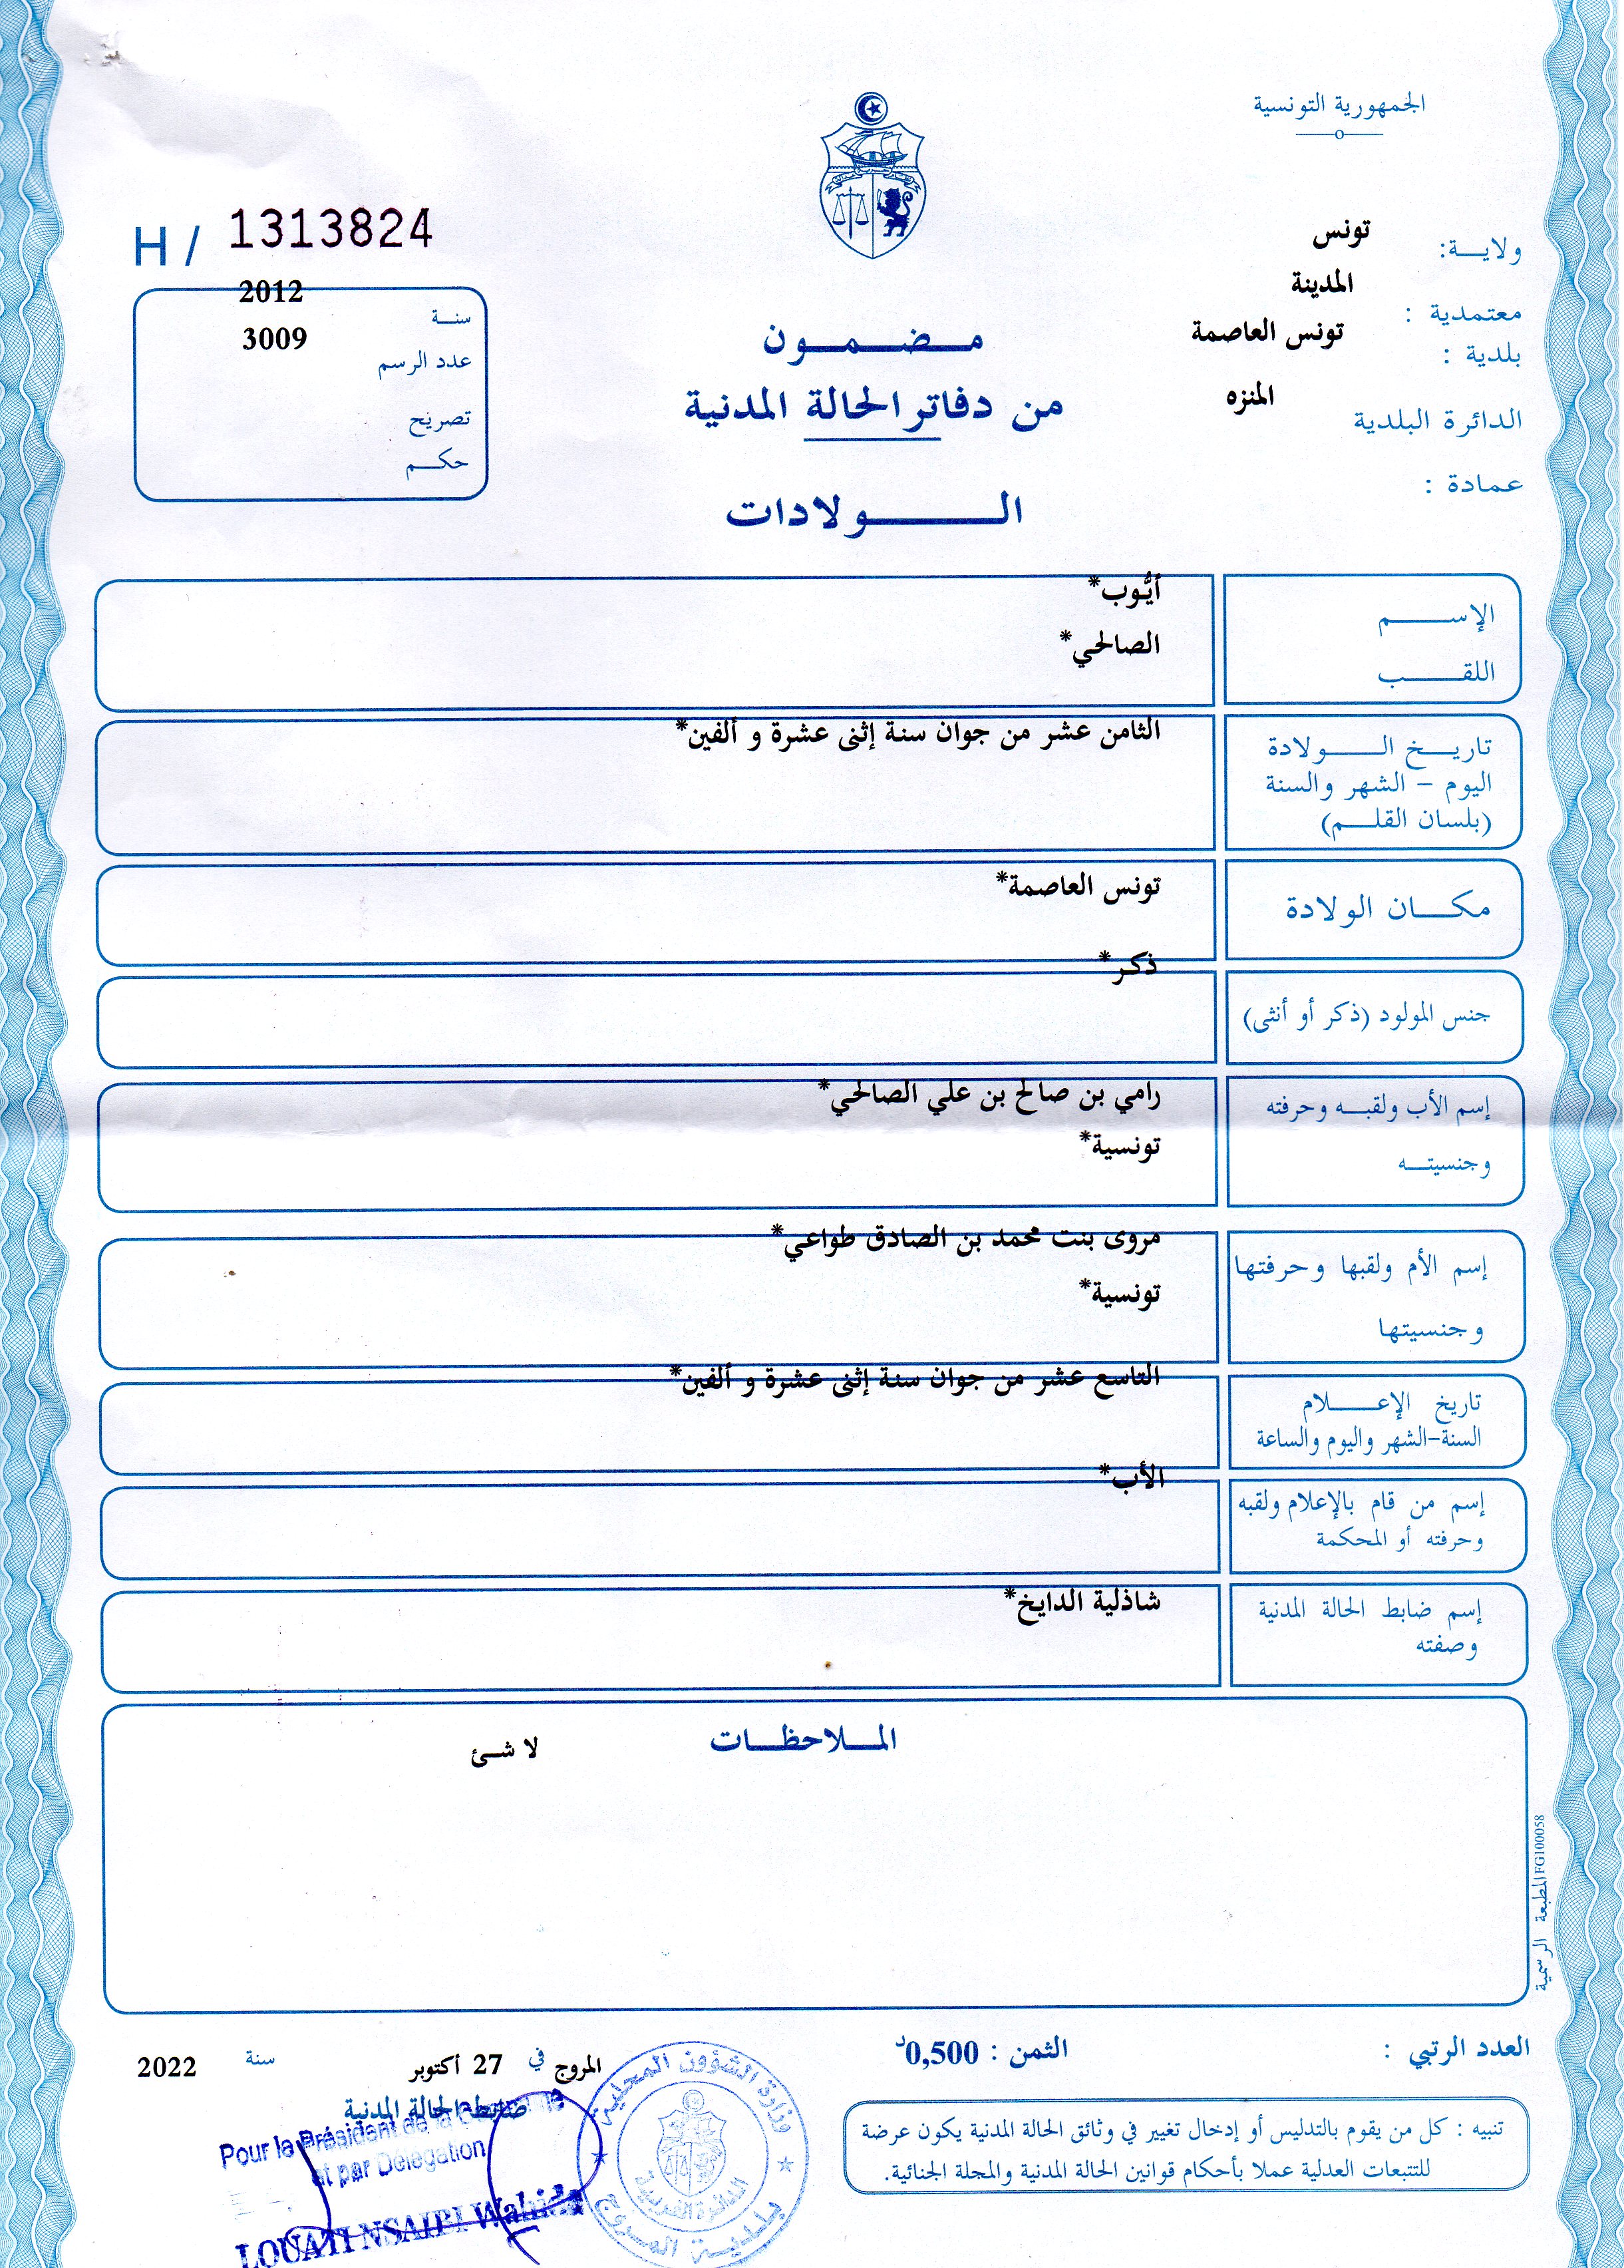 الجمهورية التونسية
H / 1313824
ولاية: تونس
معتمدية : المدينة
بلدية : تونس العاصمة
الدائرة البلدية المنزه
عمادة :
سنة 2012
عدد الرسم 3009
تصريح
حكم
مضمون
من دفاتر الحالة المدنية
الولادات
الإسم أيُّوب*
اللقب الصالحي*
تاريخ الولادة الثامن عشر من جوان سنة إثنى عشرة و ألفين*
اليوم - الشهر والسنة
(بلسان القلم)
مكان الولادة تونس العاصمة*
جنس المولود (ذكر أو أنثى) ذكر*
إسم الأب ولقبه وحرفته رامي بن صالح بن علي الصالحي*
وجنسيته تونسية*
إسم الأم ولقبها وحرفتها مروى بنت محمد بن الصادق طواعي*
وجنسيتها تونسية*
تاريخ الإعلام التاسع عشر من جوان سنة إثنى عشرة و ألفين*
السنة-الشهر واليوم والساعة
إسم من قام بالإعلام ولقبه الأب*
وحرفته أو المحكمة
إسم ضابط الحالة المدنية شاذلية الدايخ*
وصفته
الملاحظات
لا شئ
المطبعة الرسمية FG100058
العدد الرتبي :
الثمن : 0,500د
المروج في 27 أكتوبر سنة 2022
ضابط الحالة المدنية
تنبيه : كل من يقوم بالتدليس أو إدخال تغيير في وثائق الحالة المدنية يكون عرضة
للتتبعات العدلية عملا بأحكام قوانين الحالة المدنية والمجلة الجنائية.
Pour le Président de la Commune
et par Délégation
LOUATI NSAIBI Wahida
وزارة الشؤون المحلية
بلدية المروج